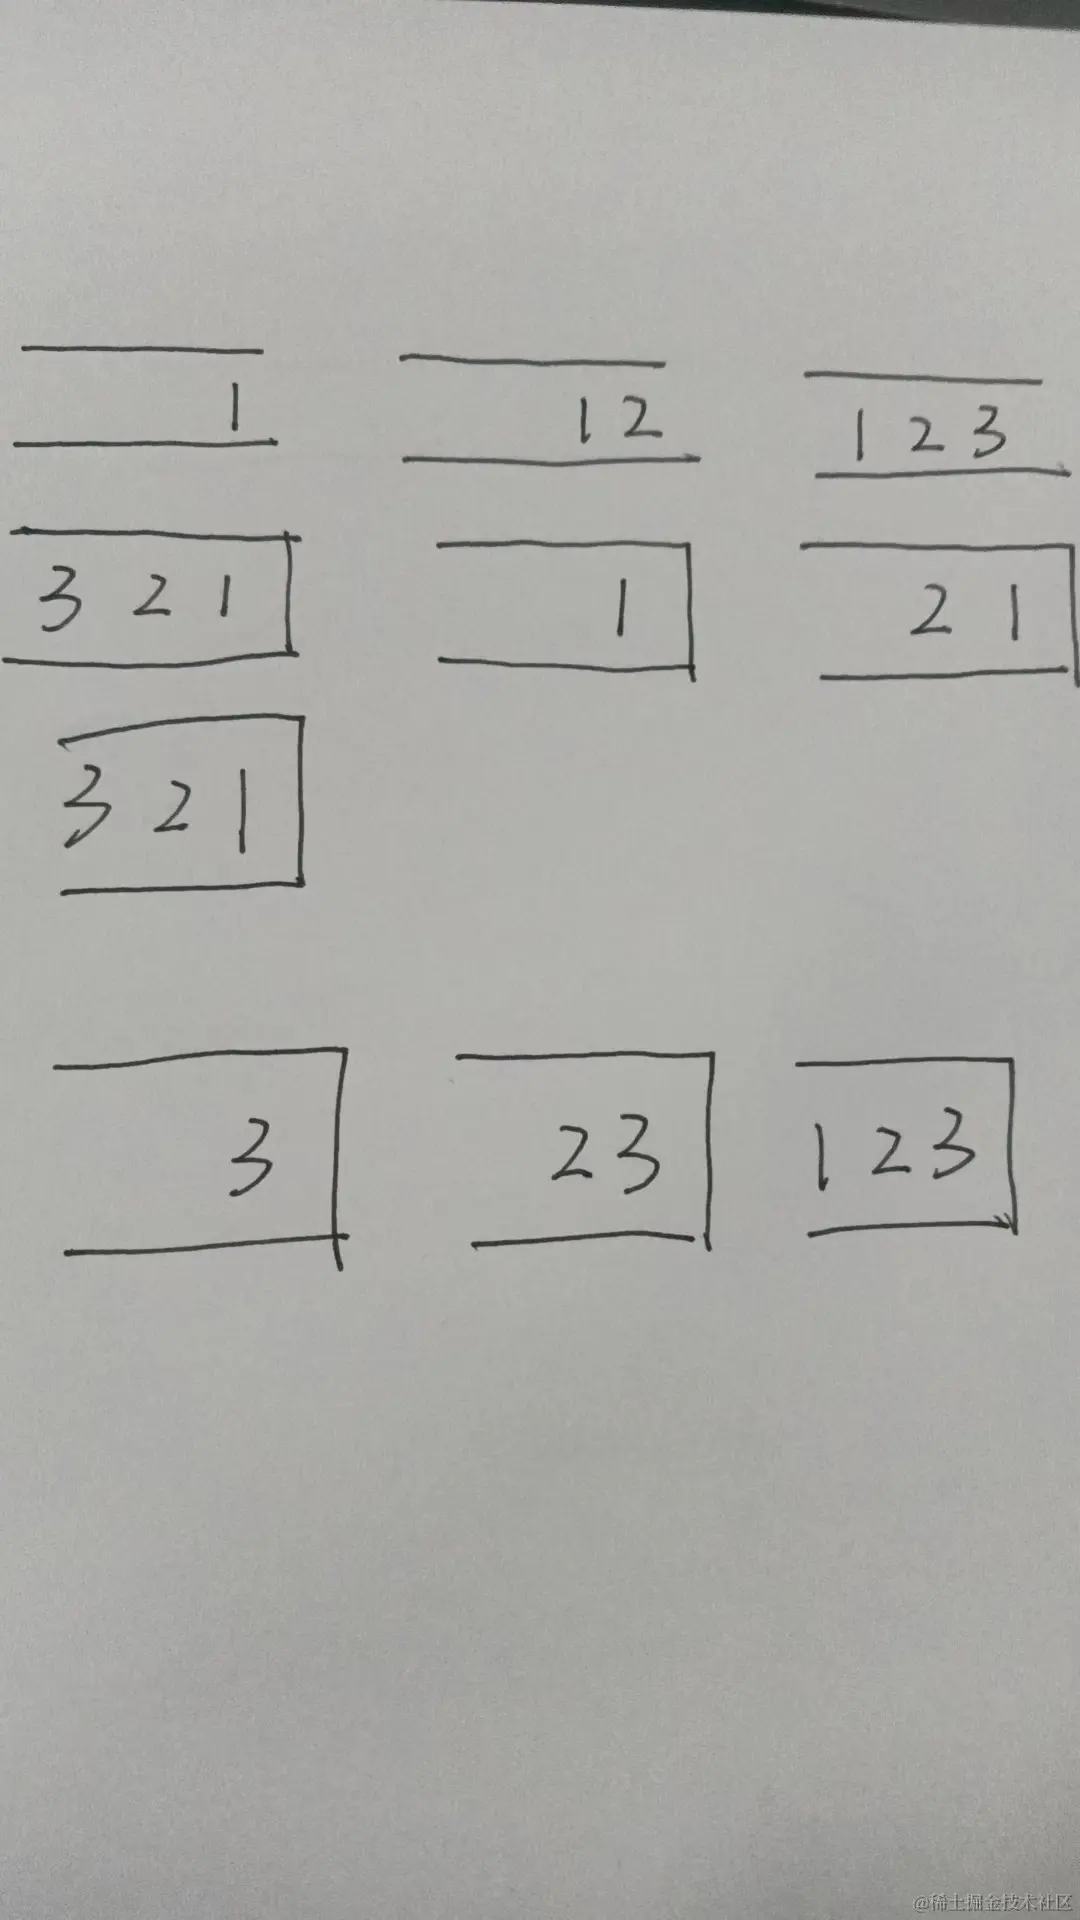 1 12 123
321 1 21
321
3 23 123
@稀土掘金技术社区